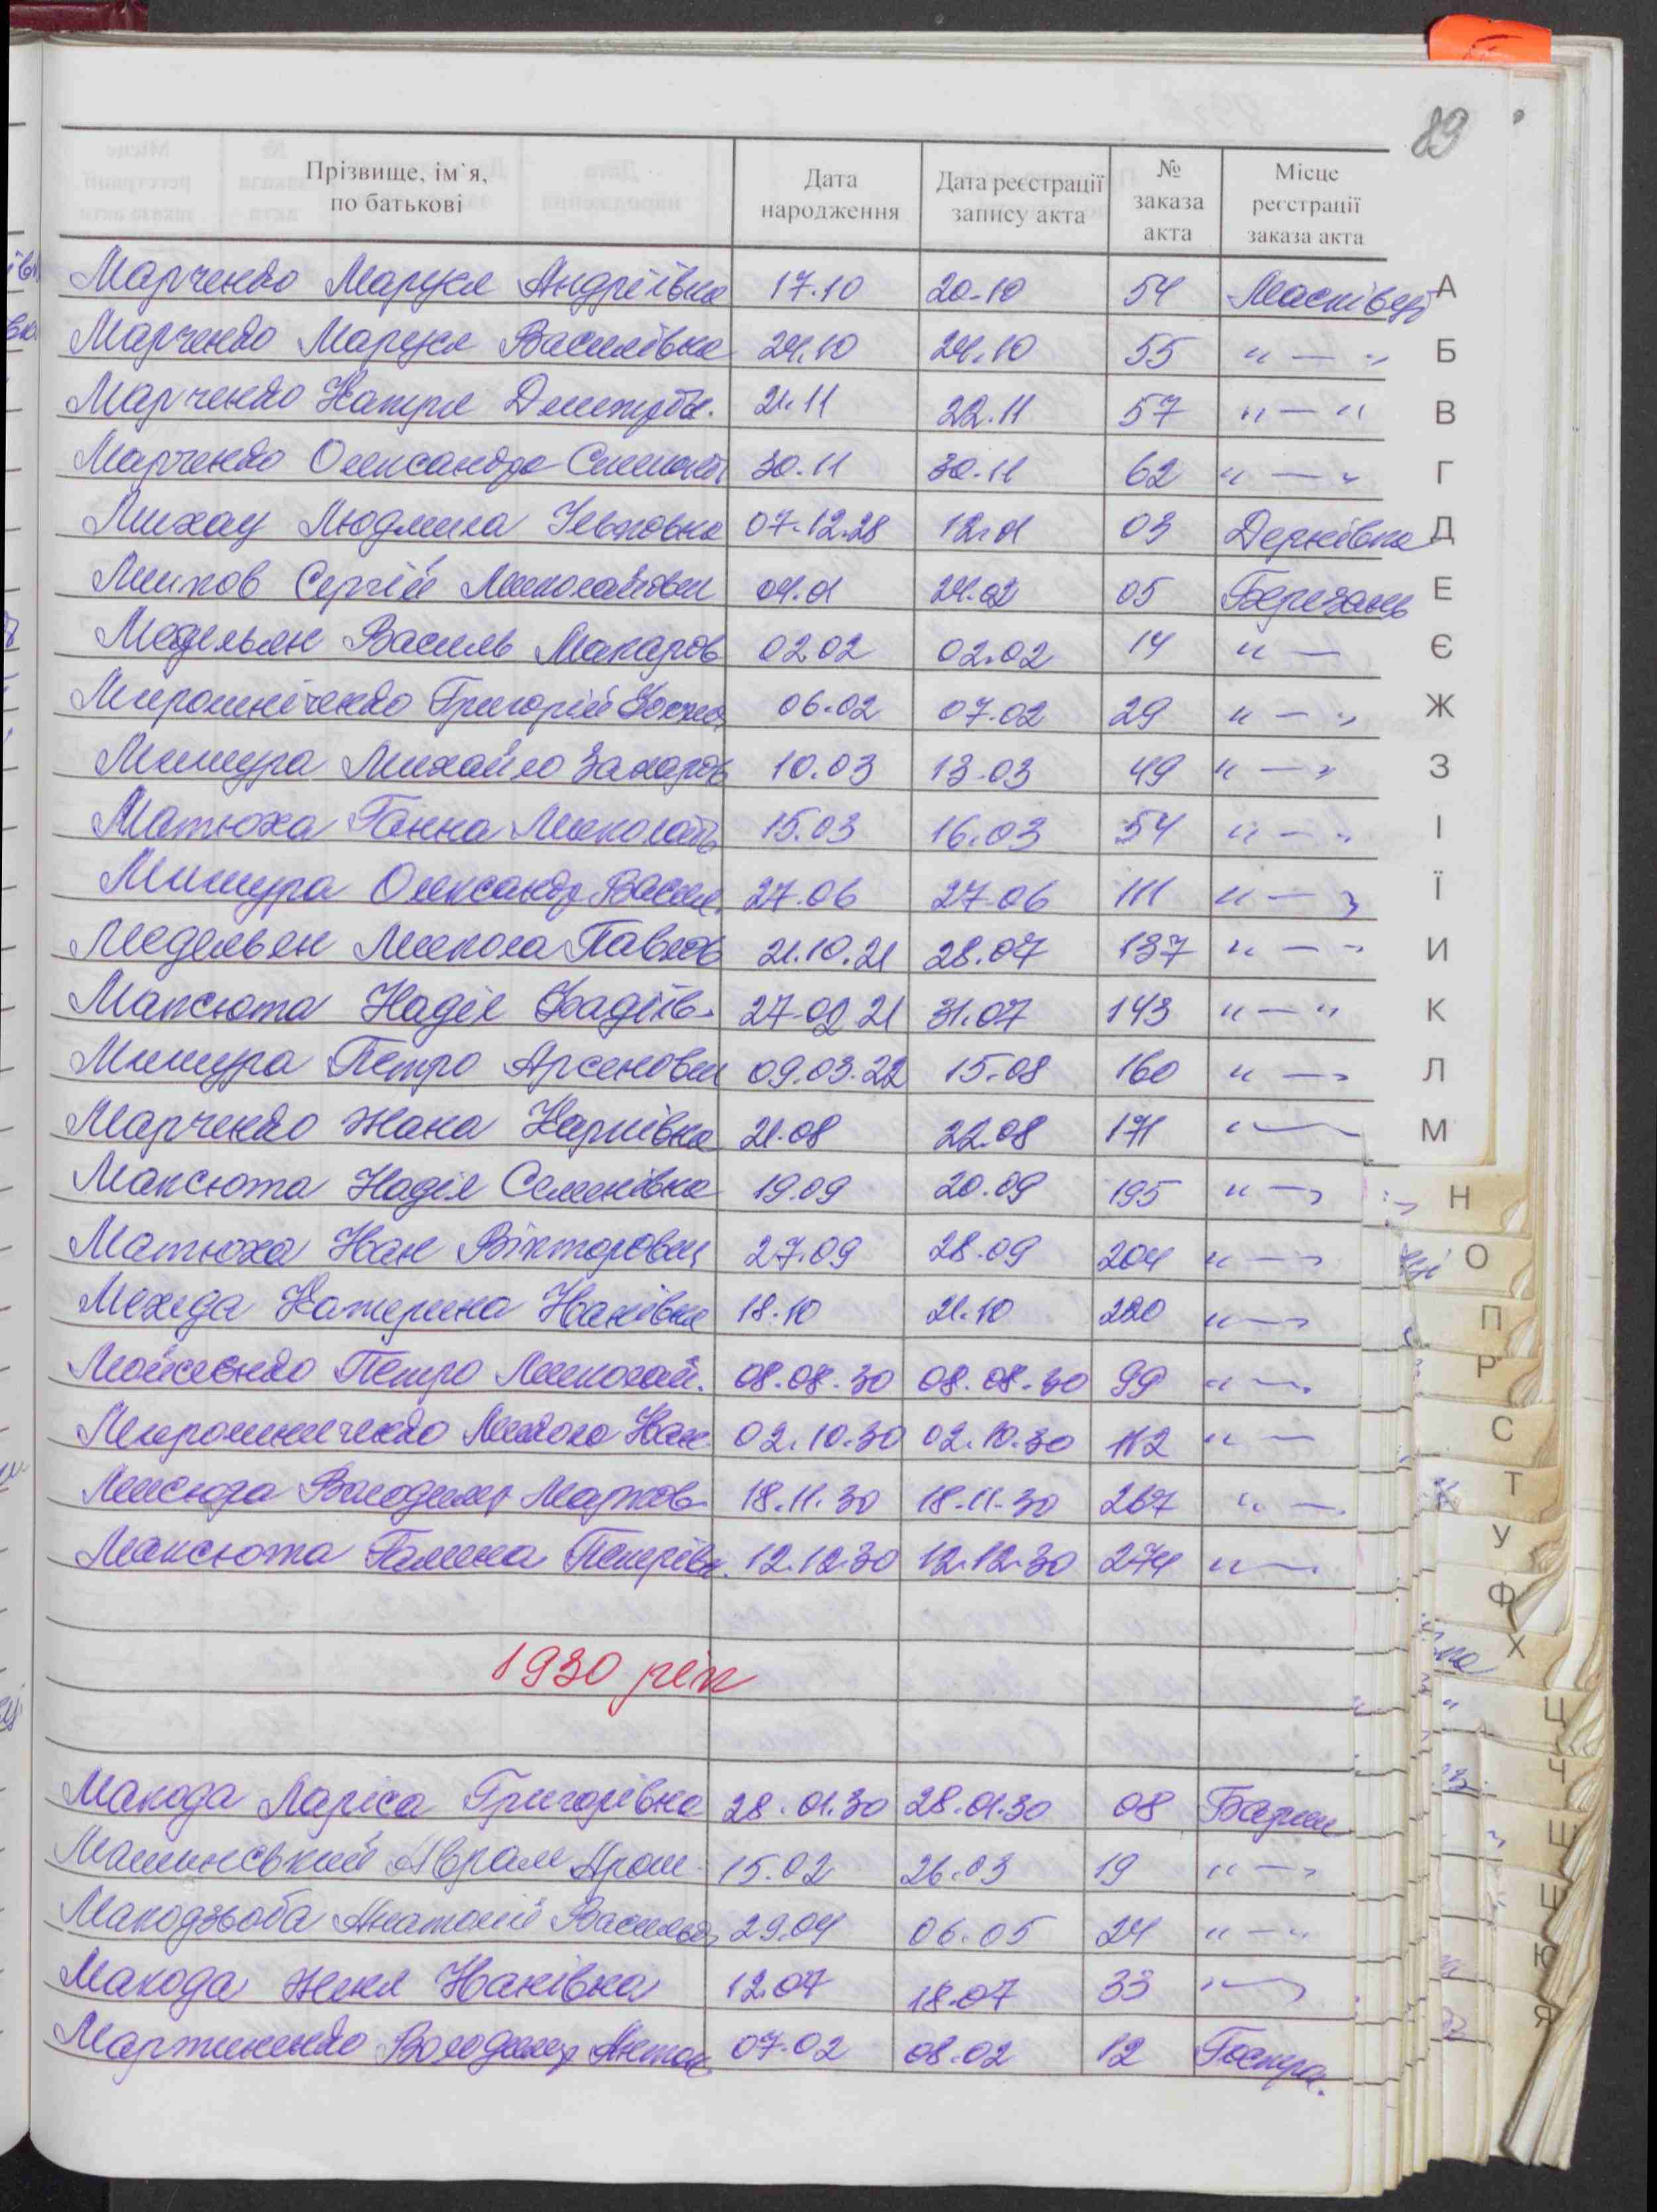 89
Прізвище, ім`я, по батькові
Дата народження
Дата реєстрації запису акта
№ заказа акта
Місце реєстрації заказа акта
Марченко Маруся Андріївна 17.10 20.10 54 Пасківці
Марченко Маруся Василівна 24.10 24.10 55 " — "
Марченко Катря 21.11 22.11 57 " — "
Марченко Олександра 30.11 30.11 62 " — "
Людмила 07.12.28 12.01 03 Дернівка
Сергій Миколайович 04.01 24.02 05 Березань
Медельян Василь Макаров 02.02 02.02 14 " —
Мирошніченко Григорій 06.02 07.02 29 " — "
Мишура Михайло Захаров 10.03 13.03 49 " — "
Матюха Ганна Миколаїв 15.03 16.03 54 " — "
Мишура Олександр Васил. 27.06 27.06 111 " — "
Медельян Микола Павлов 21.10.21 28.07 137 " — "
Максюта Надія 27.02.21 31.07 143 " — "
Мишура Петро Арсенович 09.03.22 15.08 160 " — "
Марченко Жана Карпівна 21.08 22.08 171 " — "
Максюта Надія Семенівна 19.09 20.09 195 " — "
Матюха Іван Вікторович 27.09 28.09 204 " — "
Мехеда Катерина Іванівна 18.10 21.10 220 " — "
Мойсієнко Петро Миколай. 08.08.30 08.08.30 99 " — "
Мирошниченко Микола Іван 02.10.30 02.10.30 112 " —
Володимир Марков 18.11.30 18.11.30 267 " —
Максюта Галина Петрівн. 12.12.30 12.12.30 274 " —
1930 рік
Макода Ларіса Григорівна 28.01.30 28.01.30 08 Бариш
Аврам Арон 15.02 26.03 19 " — "
Макодзьоба Анатолій Васильов 29.04 06.05 24 " — "
Макода Женя Іванівна 12.07 18.07 33 " — "
Мартиненко Володимир Антон 07.02 08.02 12 Гостра.
А
Б
В
Г
Д
Е
Є
Ж
З
І
Ї
И
К
Л
М
Н
О
П
Р
С
Т
У
Ф
Х
Ц
Ч
Ш
Щ
Ю
Я